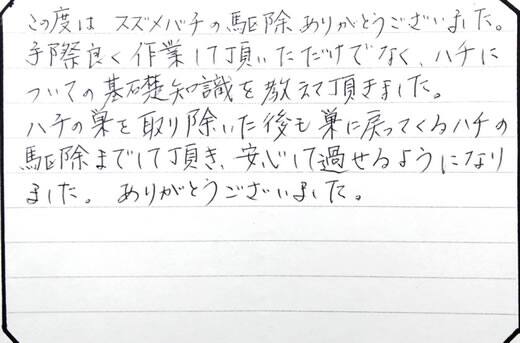 この度は スズメバチの駆除ありがとうございました。
手際良く作業して頂いただけでなく、ハチに
ついての基礎知識を教えて頂きました。
ハチの巣を取り除いた後も巣に戻ってくるハチの
駆除までして頂き、安心して過せるようになり
ました。 ありがとうございました。